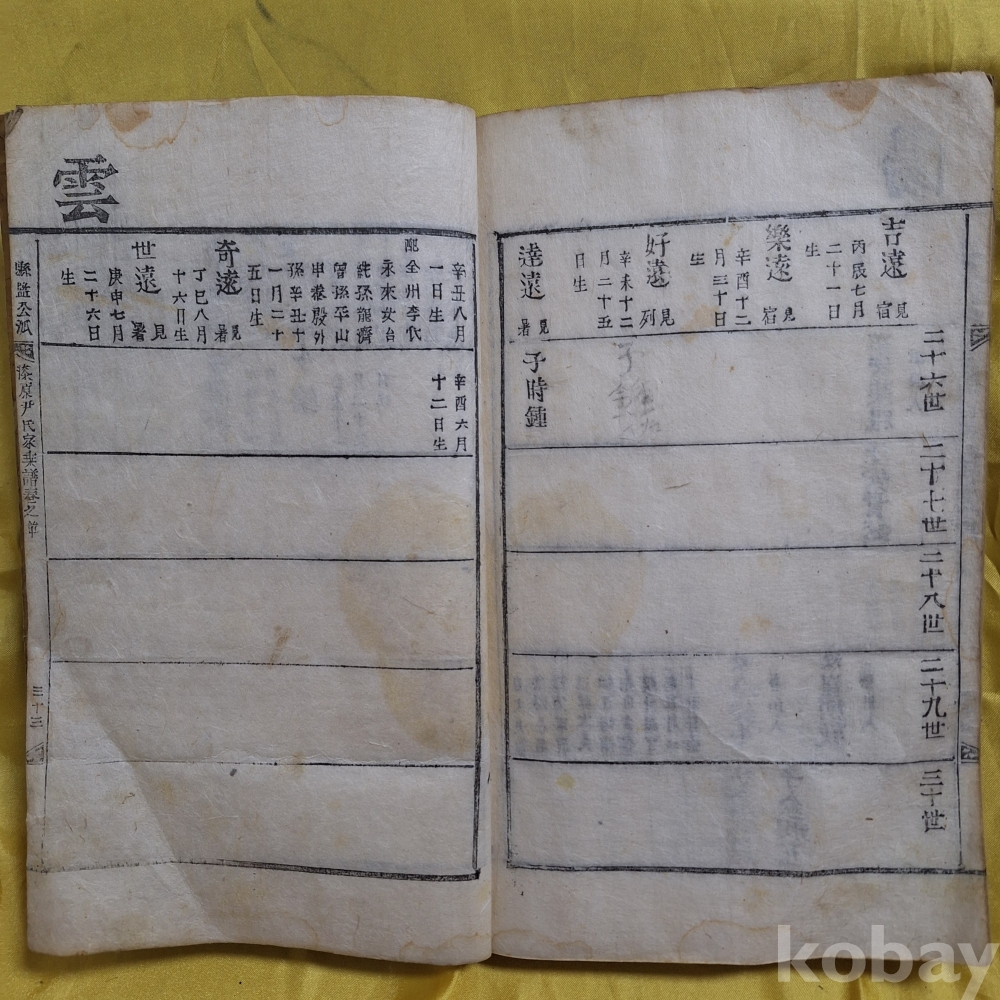 二十六世
二十七世
二十八世
二十九世
三十世
吉遠
見
宿
丙辰七月
二十一日
生
樂遠
見
宿
辛酉十二
月三十日
生
好遠
見
列
辛未十二
月二十五
日生
達遠
見
暑
子時鍾
雲
辛丑八月
一日生
配全州李氏
永來女台
純孫龍濟
曾孫平山
申泰殷外
孫辛丑十
一月二十
五日生
辛酉六月
十二日生
奇遠
見
暑
丁巳八月
十六日生
世遠
見
暑
庚申七月
二十六日
生
縣監公派
漆原尹氏家乘譜卷之
三十三
kobay